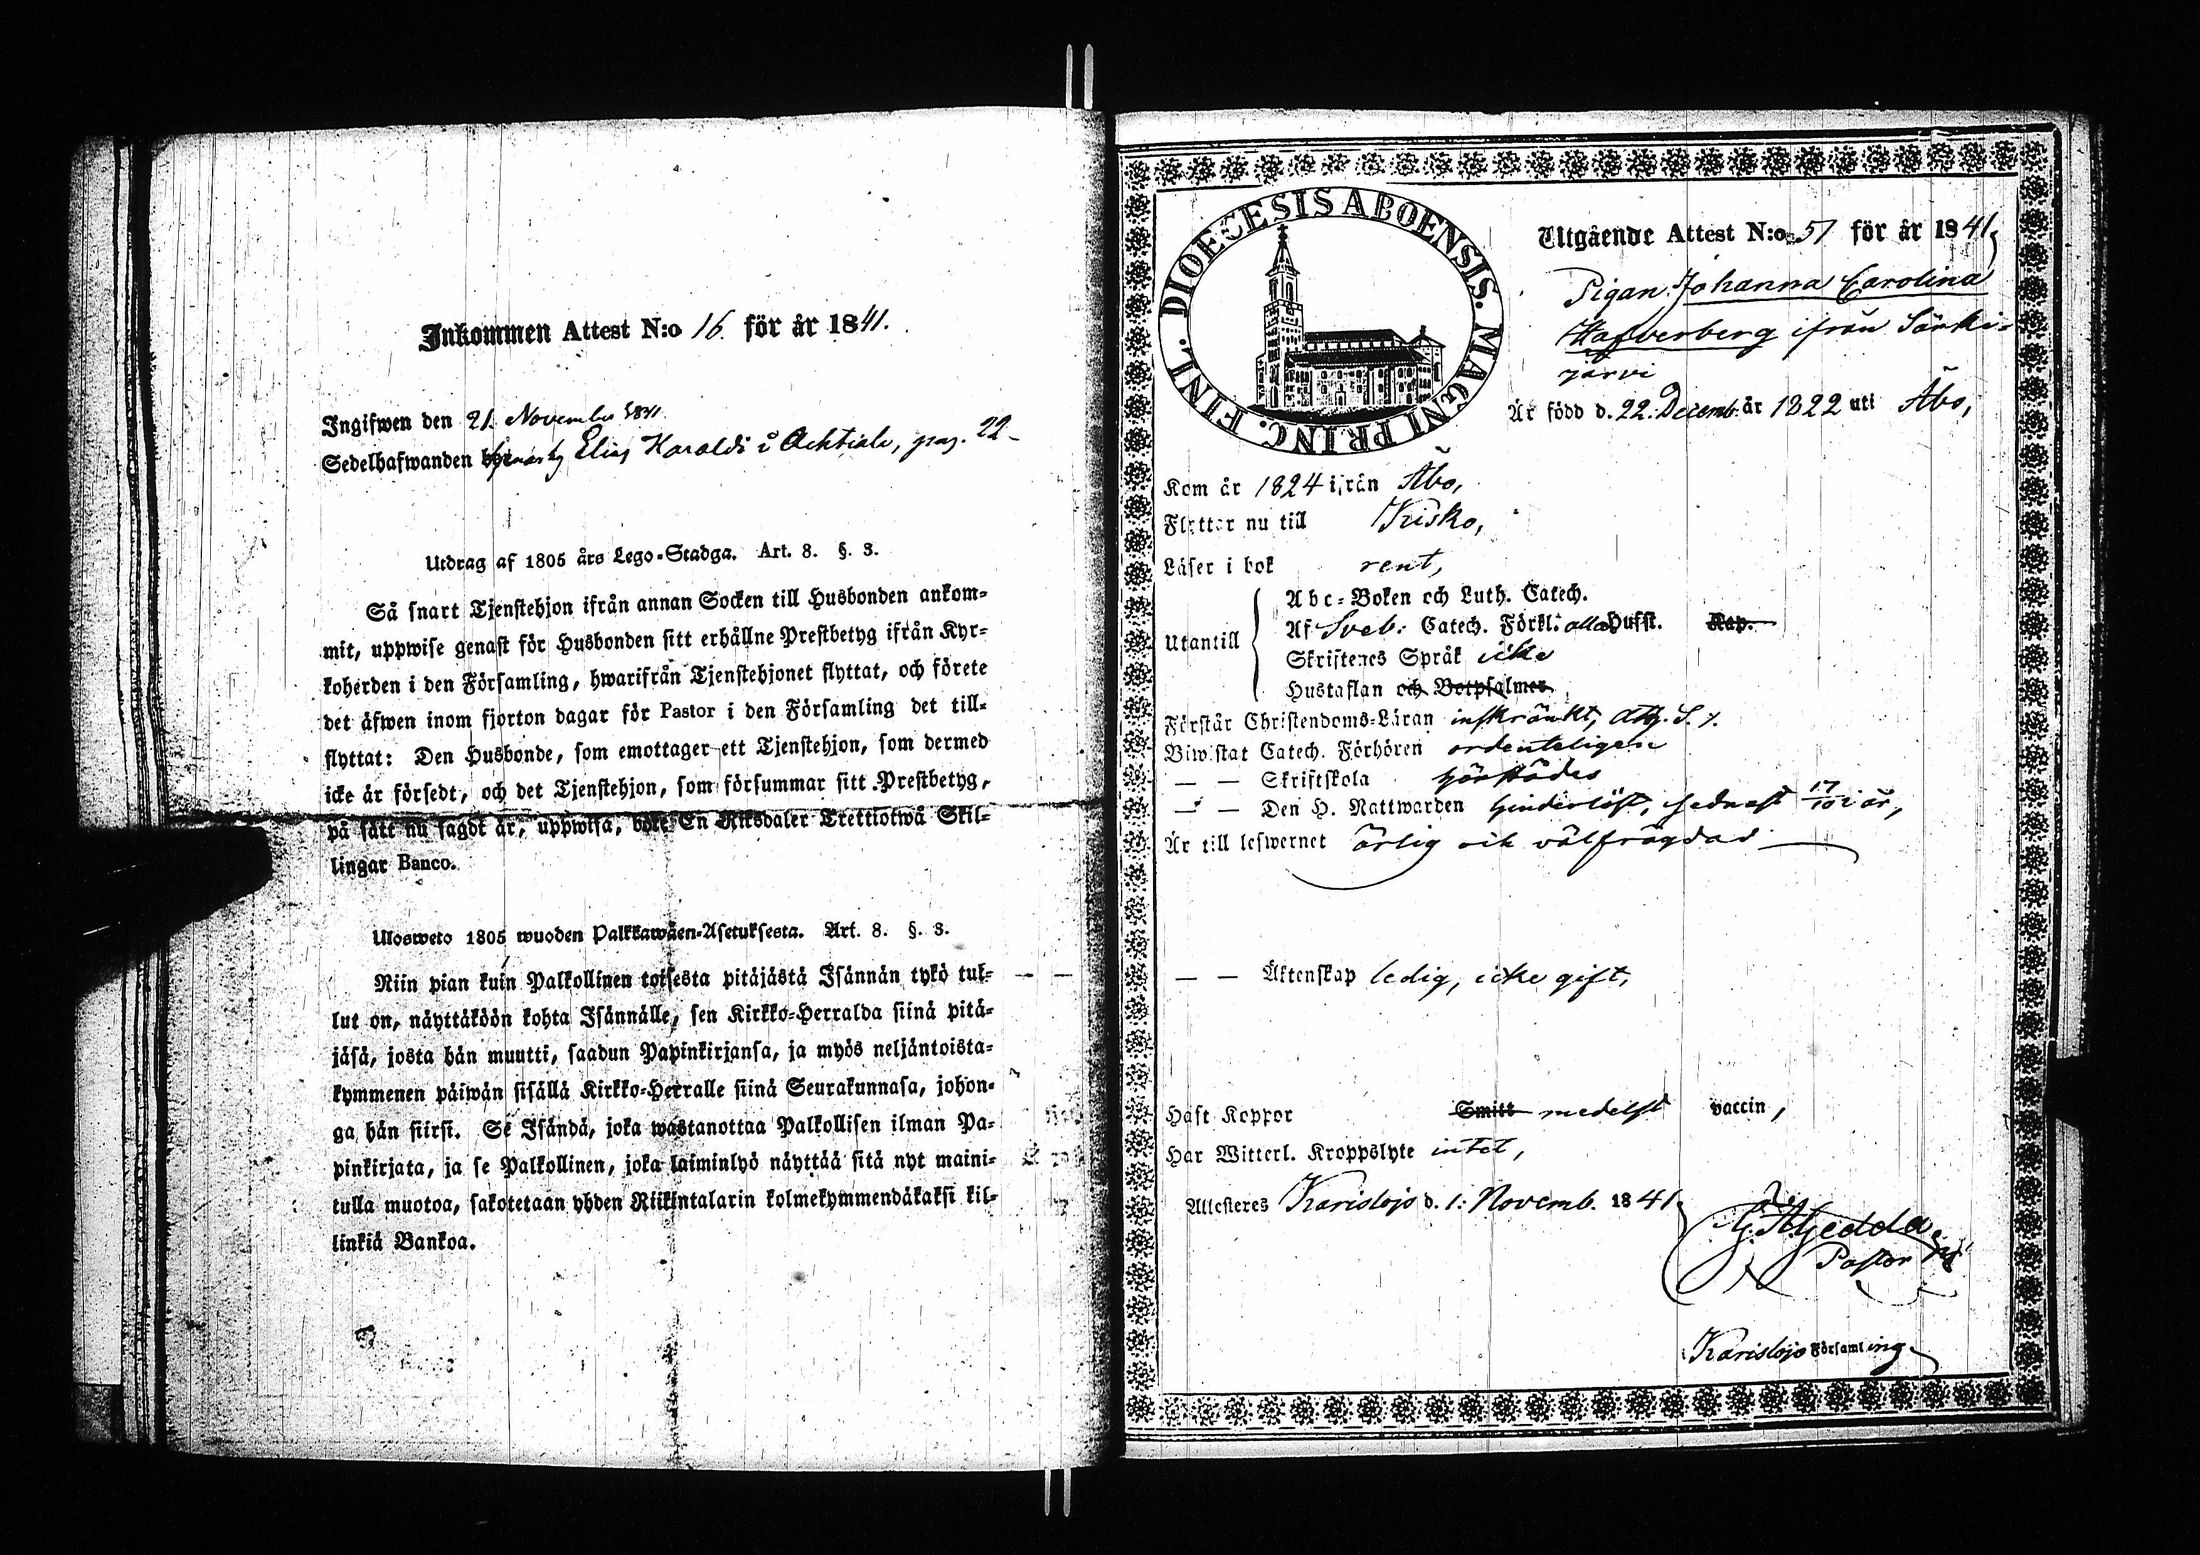 Inkommen Attest N:o 16. för år 1841.
Ingifwen den 21 November 1841
Sedelhafwanden Elias Haralds i Achtiala, pag. 22-
Utdrag af 1805 års Lego-Stadga. Art. 8. §. 3.
Så snart Tjenstehjon ifrån annan Socken till Husbonden ankom-
mit, uppwise genast för Husbonden sitt erhållne Prestbetyg ifrån Kyr-
koherden i den Församling, hwarifrån Tjenstehjonet flyttat, och förete
det äfwen inom fjorton dagar för Pastor i den Församling det till-
flyttat: Den Husbonde, som emottager ett Tjenstehjon, som dermed
icke är försedt, och det Tjenstehjon, som försummar sitt Prestbetyg,
på sätt nu sagdt är, uppwisa, böte En Riksdaler Trettiotwå Skil-
lingar Banco.
Uloswето 1805 wuoden Palkkawäen-Asetuksesta. Art. 8. §. 3.
Niin pian kuin Palkollinen toisesta pitäjästä Isännän tykö tul-
lut on, näyttäköön kohta Isännälle, sen Kirkko-Herralda siinä pitä-
jäsä, josta hän muutti, saadun Papinkirjansa, ja myös neljäntoista-
kymmenen päiwän sisällä Kirkko-Herralle siinä Seurakunnasa, johon-
ga hän siirsi. Se Isändä, joka wastanottaa Palkollisen ilman Pa-
pinkirjata, ja se Palkollinen, joka laiminlyö näyttää sitä nyt maini-
tulla muotoa, sakotetaan yhden Riikintalarin kolmekymmendäkaksi kil-
linkiä Bankoa.
DIOECESIS ABOENSIS. MAGNI PRINC. FINL.
Utgående Attest N:o 51 för år 1841,
Pigan Johanna Carolina
Hafverberg ifrån Särki-
järvi
Är född d. 22. Decemb. år 1822 uti Åbo,
Kom år 1824 ifrån Åbo,
Flyttar nu till Kisko,
Läser i bok rent,
Utantill
Abc-Boken och Luth. Catech.
Af Sveb: Catech. Förkl: alla Hufst. Kap.
Skriftenes Språk icke
Hustaflan och Botpsalmer
Förstår Christendoms-Läran inskränkt,
Biwistat Catech. Förhören ordenteligen
— — Skriftskola härstädes
— — Den H. Nattwarden hinderlöst, sednast 17/10 i år,
Är till lefwernet ärlig och välfrägdad
— — Äktenskap ledig, icke gift,
Haft Koppor Smitt medelst vaccin,
Har Witterl. Kroppslyte intet,
Attesteres Karislojo d. 1. Novemb. 1841
Gedda
Pastor
Karislojo Församling